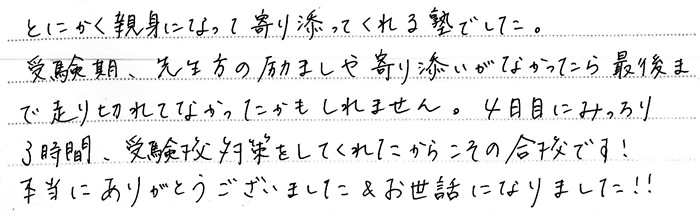 とにかく親身になって寄り添ってくれる塾でした。
受験期、先生方の励ましや寄り添いがなかったら最後ま
で走り切れてなかったかもしれません。4日目にみっちり
3時間、受験校対策をしてくれたからこその合格です!
本当にありがとうございました&お世話になりました!!